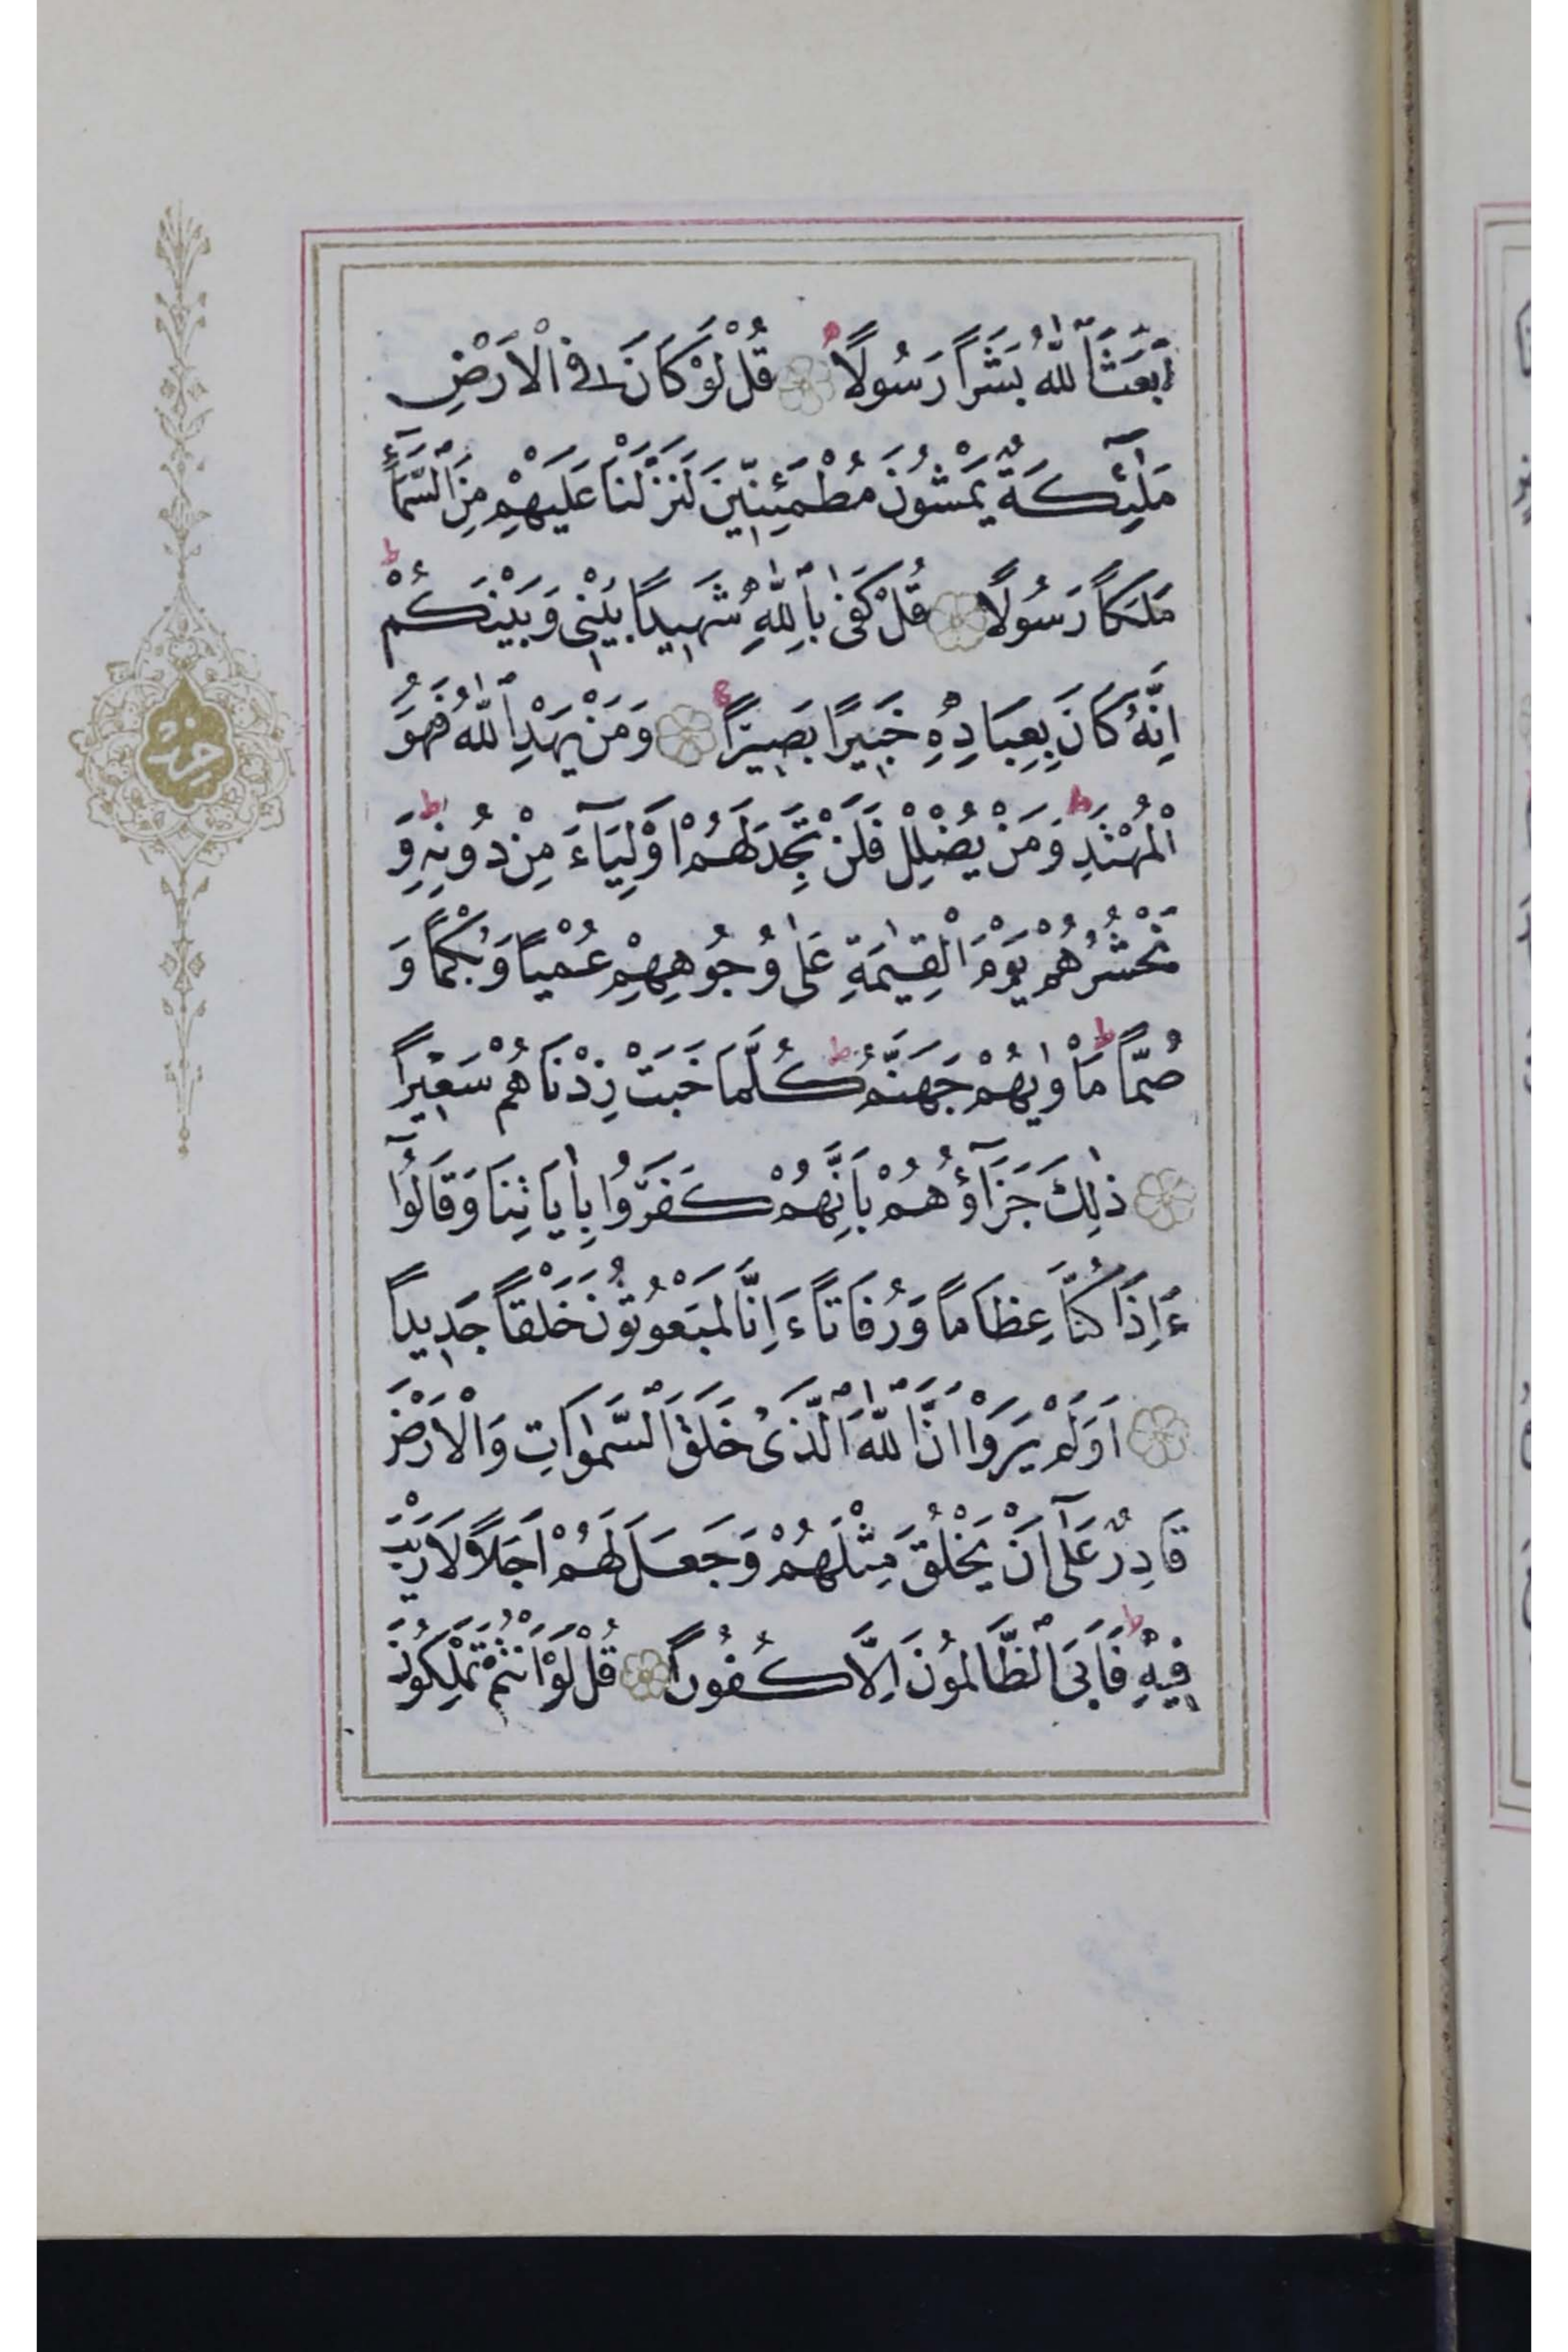 اَبَعَثَ اللّٰهُ بَشَرًا رَسُولًا قُلْ لَوْ كَانَ فِي الْاَرْضِ
مَلٰٓئِكَةٌ يَمْشُونَ مُطْمَئِنِّينَ لَنَزَّلْنَا عَلَيْهِمْ مِنَ السَّمَٓاءِ
مَلَكًا رَسُولًا قُلْ كَفٰى بِاللّٰهِ شَهِيدًا بَيْنِي وَبَيْنَكُمْ ط
اِنَّهُ كَانَ بِعِبَادِهِ خَبِيرًا بَصِيرًا وَمَنْ يَهْدِ اللّٰهُ فَهُوَ
الْمُهْتَدِ ط وَمَنْ يُضْلِلْ فَلَنْ تَجِدَ لَهُمْ اَوْلِيَٓاءَ مِنْ دُونِهِ ط وَ
نَحْشُرُهُمْ يَوْمَ الْقِيٰمَةِ عَلٰى وُجُوهِهِمْ عُمْيًا وَبُكْمًا وَ
صُمًّا ط مَاْوٰيهُمْ جَهَنَّمُ ط كُلَّمَا خَبَتْ زِدْنَاهُمْ سَعِيرًا
ذٰلِكَ جَزَٓاؤُهُمْ بِاَنَّهُمْ كَفَرُوا بِاٰيَاتِنَا وَقَالُٓوا
ءَاِذَا كُنَّا عِظَامًا وَرُفَاتًا ءَاِنَّا لَمَبْعُوثُونَ خَلْقًا جَدِيدًا
اَوَلَمْ يَرَوْا اَنَّ اللّٰهَ الَّذِي خَلَقَ السَّمٰوَاتِ وَالْاَرْضَ
قَادِرٌ عَلٰٓى اَنْ يَخْلُقَ مِثْلَهُمْ وَجَعَلَ لَهُمْ اَجَلًا لَا رَيْبَ
فِيهِ ط فَاَبَى الظَّالِمُونَ اِلَّا كُفُورًا قُلْ لَوْ اَنْتُمْ تَمْلِكُونَ
حزب